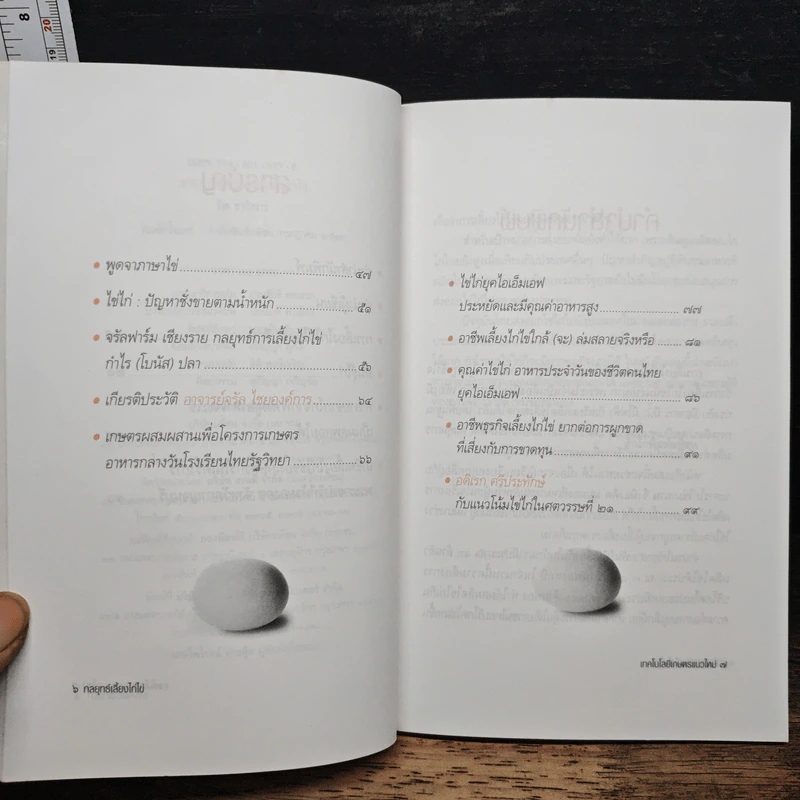 8
19
20
• พูดจาภาษาไข่ ๔๗
• ไข่ไก่ : ปัญหาชั่งขายตามน้ำหนัก ๕๑
• จรัลฟาร์ม เชียงราย กลยุทธ์การเลี้ยงไก่ไข่
กำไร (โบนัส) ปลา ๕๖
• เกียรติประวัติ อาจารย์จรัล ไชยองค์การ ๖๔
• เกษตรผสมผสานเพื่อโครงการเกษตร
อาหารกลางวันโรงเรียนไทยรัฐวิทยา ๖๖
๖ กลยุทธ์เลี้ยงไก่ไข่
• ไข่ไก่ยุคไอเอ็มเอฟ
ประหยัดและมีคุณค่าอาหารสูง ๗๗
• อาชีพเลี้ยงไก่ไข่ใกล้ (จะ) ล่มสลายจริงหรือ ๘๑
• คุณค่าไข่ไก่ อาหารประจำวันของชีวิตคนไทย
ยุคไอเอ็มเอฟ ๘๖
• อาชีพธุรกิจเลี้ยงไก่ไข่ ยากต่อการผูกขาด
ที่เสี่ยงกับการขาดทุน ๙๑
• อดิเรก ศรีประทักษ์
กับแนวโน้มไข่ไก่ในศตวรรษที่ ๒๑ ๙๙
เทคโนโลยีเกษตรแนวใหม่ ๗